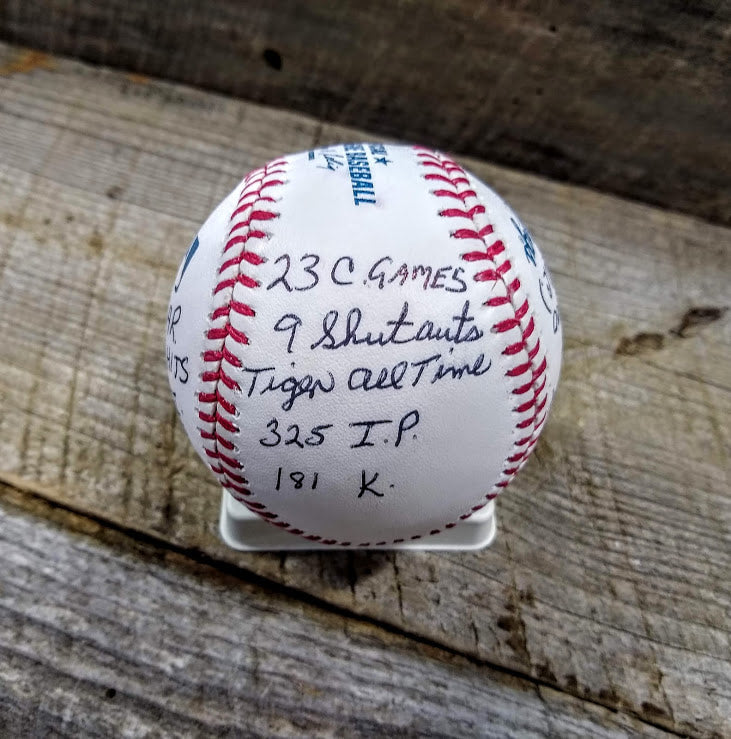 BASEBALL
23 C. GAMES
9 Shutouts
Tiger all Time
325 I.P.
181 K.